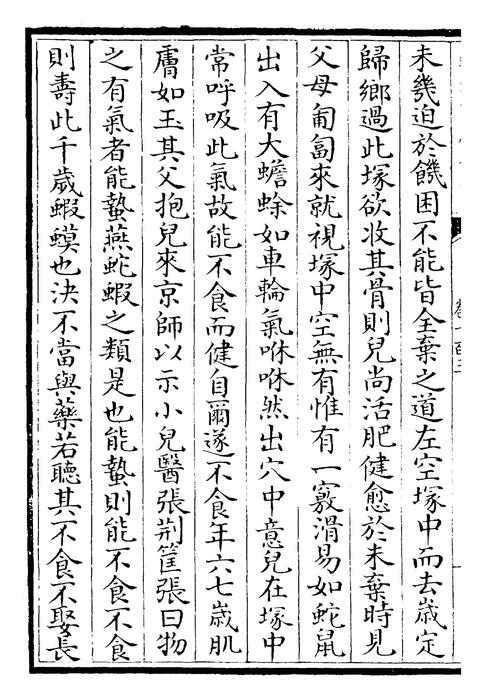 未幾迫於饑困不能皆全棄之道左空塚中而去歳定
歸鄉過此塚欲收其骨則兒尚活肥健愈於未棄時見
父母匍匐來就視塚中空無有惟有一竅滑易如蛇鼠
出入有大蟾蜍如車輪氣咻咻然出穴中意兒在塚中
常呼吸此氣故能不食而健自爾遂不食年六七歳肌
膚如玉其父抱兒來京師以示小兒醫張荆筐張曰物
之有氣者能蟄燕蛇蝦之類是也能蟄則能不食不食
則壽此千歳蝦蟆也決不當與藥若聽其不食不娶長